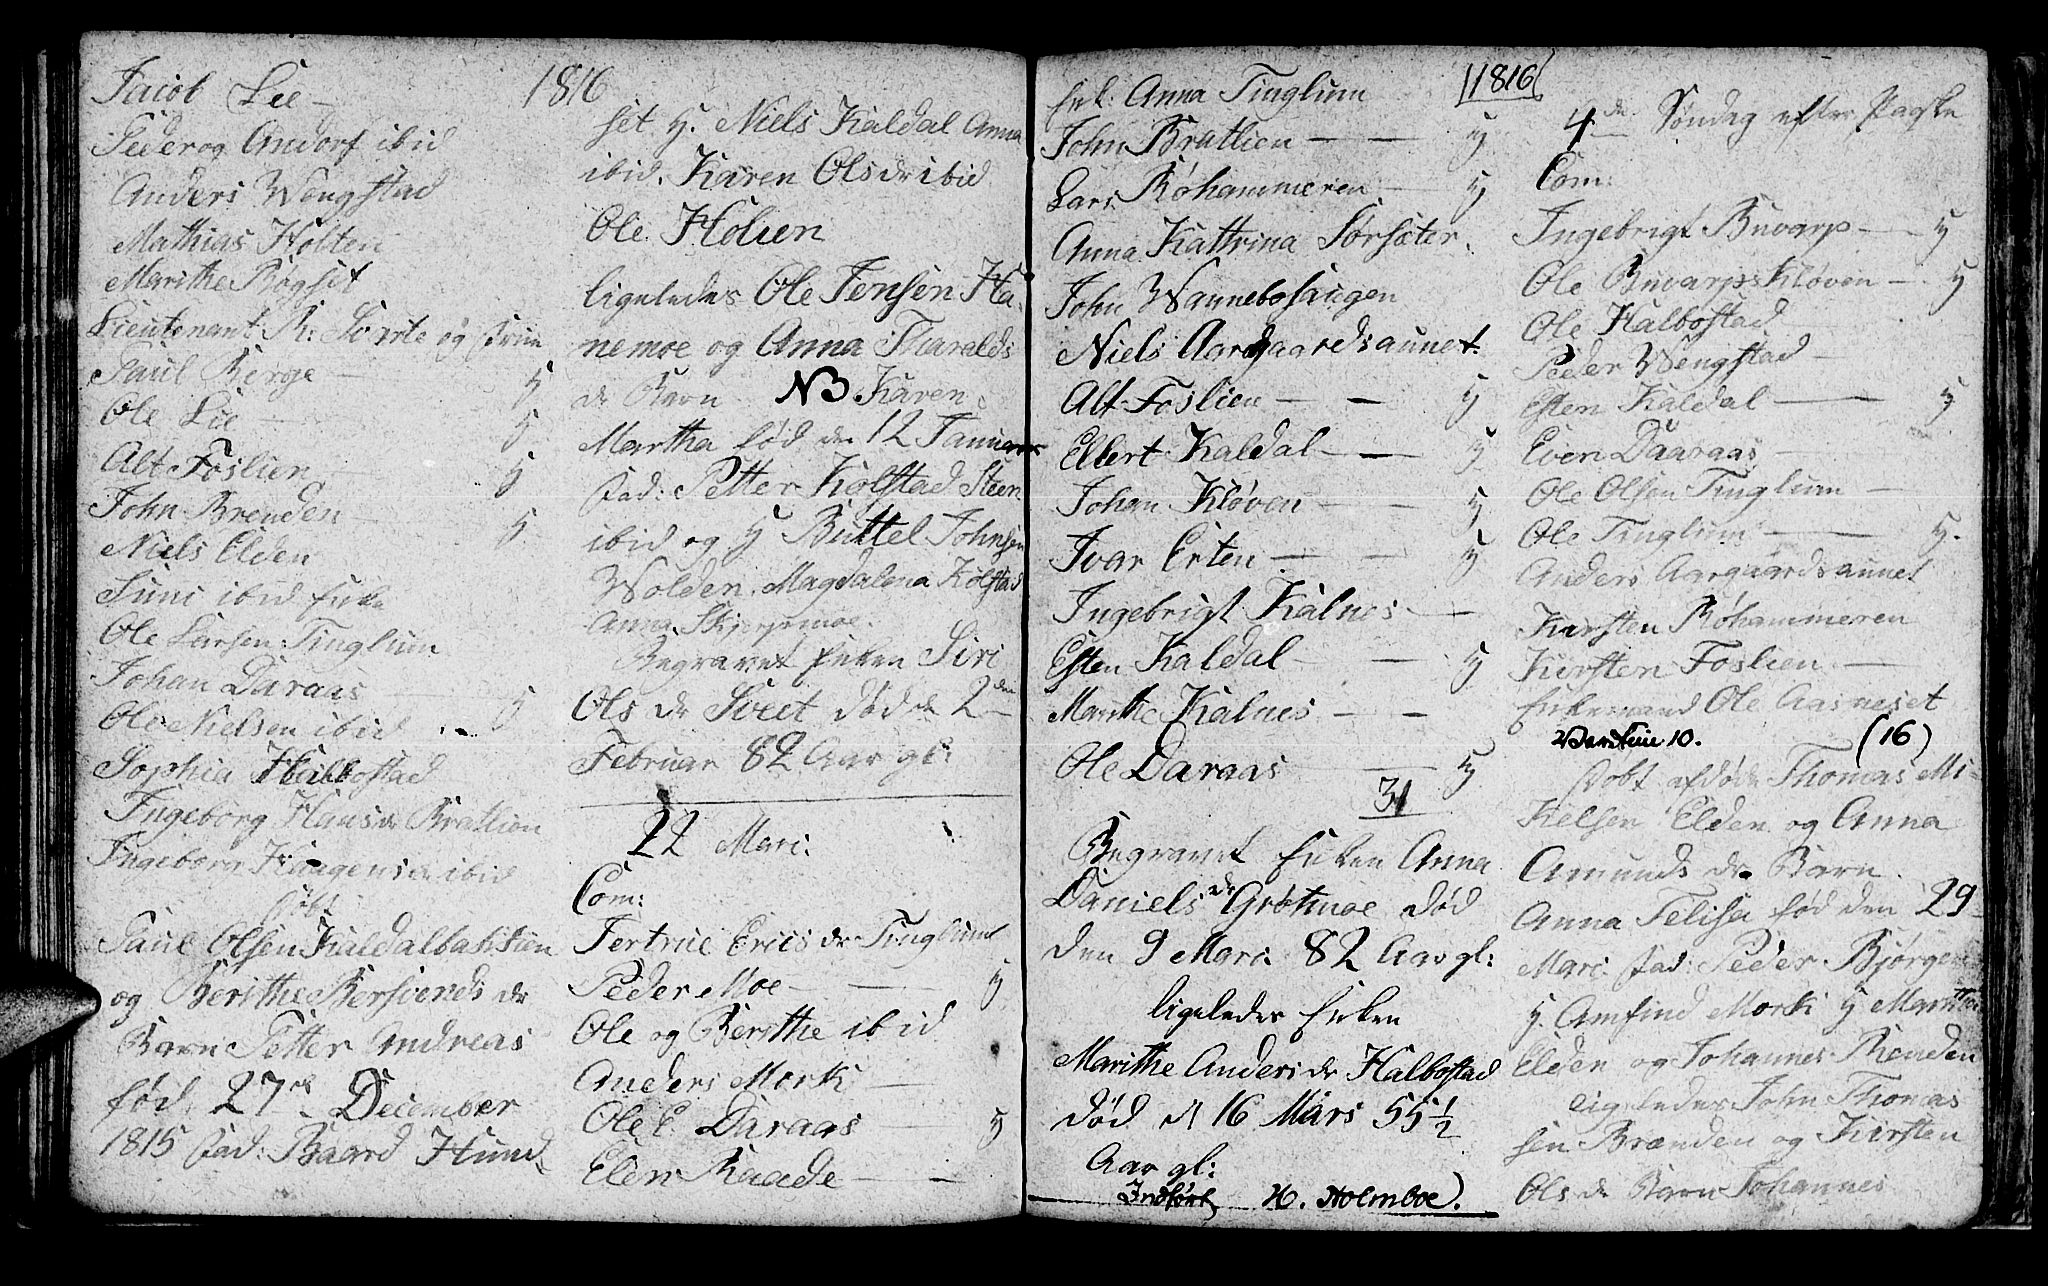 Jacob Lie —
1816
Peder og Andorf ibid
Anders Wongstad
Mathias Holten
Marithe Røgset
Lieutenant R: Sørrte og Frue
Paul Berge — y
Ole Lie — y
Alt Foslien — y
John Brenden — y
Niels Elden
Suni ibid Enke
Ole Larsen Tinglum
Johan Daraas — y
Ole Nielsen ibid
Sophia Halbostad
Ingeborg Hansdr Bratlien
Ingeborg Haagensdr ibid
Døbt
Paul Olsen Kaldalbakken
og Berithe Bersvends dr
Barn Petter Andreas
fød 27de December
1815 Fad: Baard Hund
set y. Niels Kaldal Anna
ibid. Karen Olsdr ibid
Ole Holien
ligeledes Ole Jensen Ha
nemoe og Anna Tharalds
dr Barn NB. Karen
Martha fød den 12 Januar
Fad: Petter Kolstad Steen
ibid og y Buttel Johnsen
Wolden. Magdalena Kolstad
Anna Skjerpmoe.
Begravet Enken Siri
Ols dr Sveet død d 2den
Februar 82 Aar gl:
22 Marc:
Com:
Jertrue Erics dr Tinglum
Peder Moe — y
Ole og Berithe ibid
Anders Morki —
Ole E. Daraas — y
Elen Raade —
Enk: Anna Tinglum
1816
John Bratlien — — y
Lars Røhammeren — y
Anna Kattrina Sørsæter.
John Wannebosaugen
Niels Aargaardsaunet.
Alt Foslien — — y
Elbert Kaldal — — y
Johan Kløven — — y
Ivar Erten — — y
Ingebrigt Kalnes — —
Esten Kaldal — — y
Marithe Kalnes — —
Ole Daraas — y
31
Begravet Enken Anna
Daniels dr Grøtmoe død
den 9 Marc: 82 Aar gl:
ligeledes Enken
Marithe Anders dr Halbostad
død d 16 Mars 55 1/2
Aar gl:
Indført H. Holmboe.
4de Søndag efter Paaske
Com:
Ingebrigt Buvarp — y
Ole Buvarpskløven — y
Ole Halbostad
Peder Wengstad —
Esten Kaldal — y
Even Daaraas —
Ole Olsen Tinglum —
Ole Tinglum — y.
Anders Aargaardsaunet
Kirsten Røhammeren
Kirsten Foslien —
Enkemand Ole Aasneset
10. (16)
Døbt afdøde Thomas Mi-
kelsen Elden og Anna
Amunds dr Barn
Anna Felisa fød den 29
Marc. Fad: Peder Bjørgen
y. Amfind Morki y Marithe
Elden og Johannes Brenden
ligeledes John Thomas
sen Brænden og Kirsten
Ols dr Barn Johannes